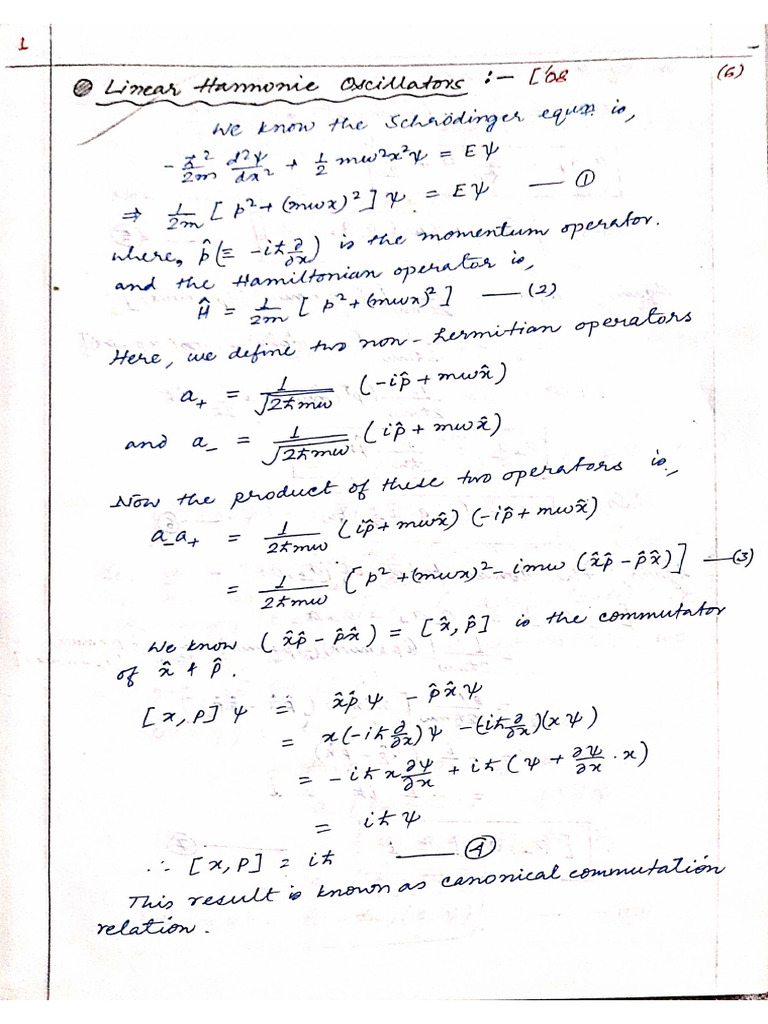 1
Linear Harmonic Oscillators :- ['08 (6)
We know the Schrödinger equn. is,
-ħ²/2m d²ψ/dx² + 1/2 mω²x²ψ = Eψ
⇒ 1/2m [p² + (mωx)²] ψ = Eψ — ①
where, p̂(≡ -iħ∂/∂x) is the momentum operator.
and the Hamiltonian operator is,
Ĥ = 1/2m [p² + (mωx)²] — (2)
Here, we define two non-hermitian operators
a₊ = 1/√2ħmω (-ip̂ + mωx̂)
and a₋ = 1/√2ħmω (ip̂ + mωx̂)
Now the product of these two operators is,
a₋a₊ = 1/2ħmω (ip̂ + mωx̂) (-ip̂ + mωx̂)
= 1/2ħmω [p² + (mωx)² - imω (x̂p̂ - p̂x̂)] — (3)
We know (x̂p̂ - p̂x̂) = [x̂, p̂] is the commutator
of x̂ & p̂.
[x, p] ψ = x̂p̂ψ - p̂x̂ψ
= x(-iħ∂/∂x)ψ - (-iħ∂/∂x)(xψ)
= -iħx∂ψ/∂x + iħ(ψ + ∂ψ/∂x · x)
= iħψ
∴ [x, p] = iħ — ④
This result is known as canonical commutation
relation.